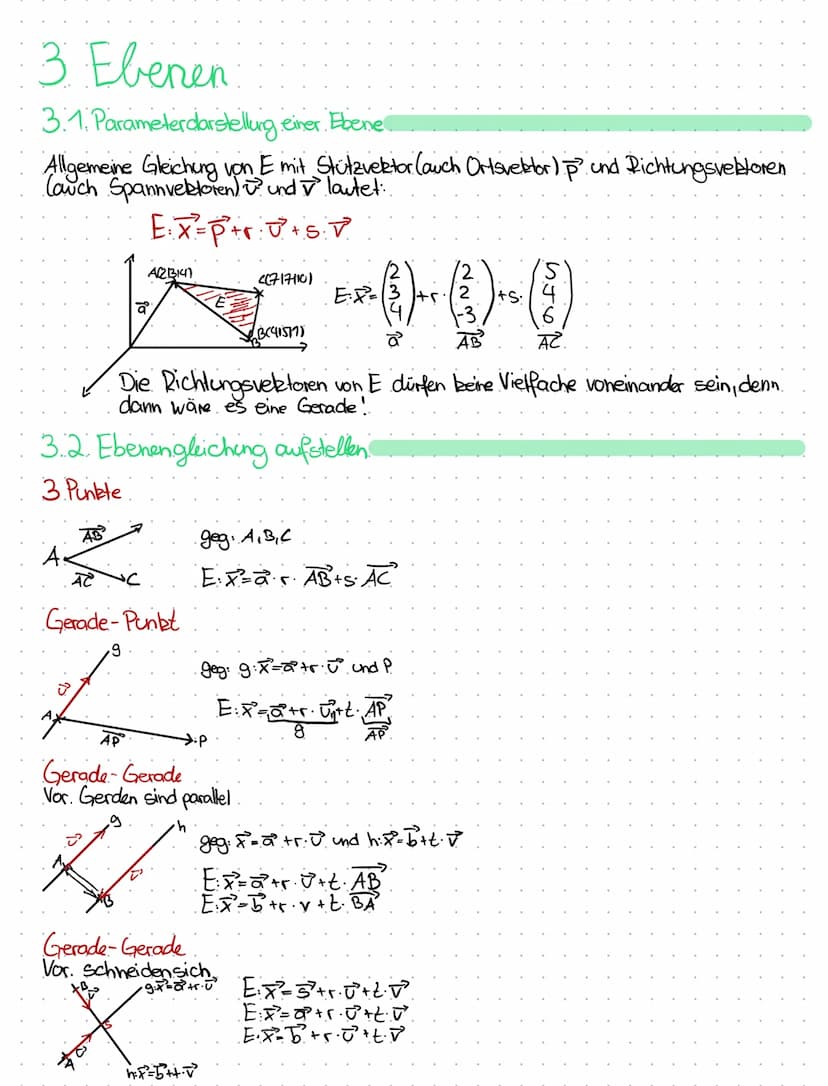 3 Ebenen
3.1. Parameterdarstellung einer Ebene
Allgemeine Gleichung von E mit Stützvektor (auch Ortsvektor) p⃗ und Richtungsvektoren
(auch Spannvektoren) u⃗ und v⃗ lautet:
E: x⃗ = p⃗ + r · u⃗ + s · v⃗
A(2|3|4) C(7|7|10) E: x⃗ = (2 3 4) + r · (2 2 -3) + s · (5 4 6)
a⃗ E B(4|5|1) a⃗ AB⃗ AC⃗
Die Richtungsvektoren von E dürfen keine Vielfache voneinander sein, denn
dann wäre es eine Gerade!
3.2. Ebenengleichung aufstellen
3 Punkte
AB⃗ geg: A, B, C
A
AC⃗ C E: x⃗ = a⃗ · r · AB⃗ + s · AC⃗
Gerade-Punkt
g
u⃗ geg: g: x⃗ = a⃗ + r · u⃗ und P
A E: x⃗ = a⃗ + r · u⃗ + t · AP⃗
AP⃗ P g AP⃗
Gerade-Gerade
Vor. Gerden sind parallel
g h
u⃗ geg: x⃗ = a⃗ + r · u⃗ und h: x⃗ = b⃗ + t · v⃗
A v⃗ E: x⃗ = a⃗ + r · u⃗ + t · AB⃗
B E: x⃗ = b⃗ + r · v + t · BA⃗
Gerade-Gerade
Vor. schneiden sich
B v⃗ g: x⃗ = a⃗ + r · u⃗ E: x⃗ = s⃗ + r · u⃗ + t · v⃗
S E: x⃗ = a⃗ + r · u⃗ + t · v⃗
u⃗ E: x⃗ = b⃗ + r · u⃗ + t · v⃗
A h: x⃗ = b⃗ + t · v⃗